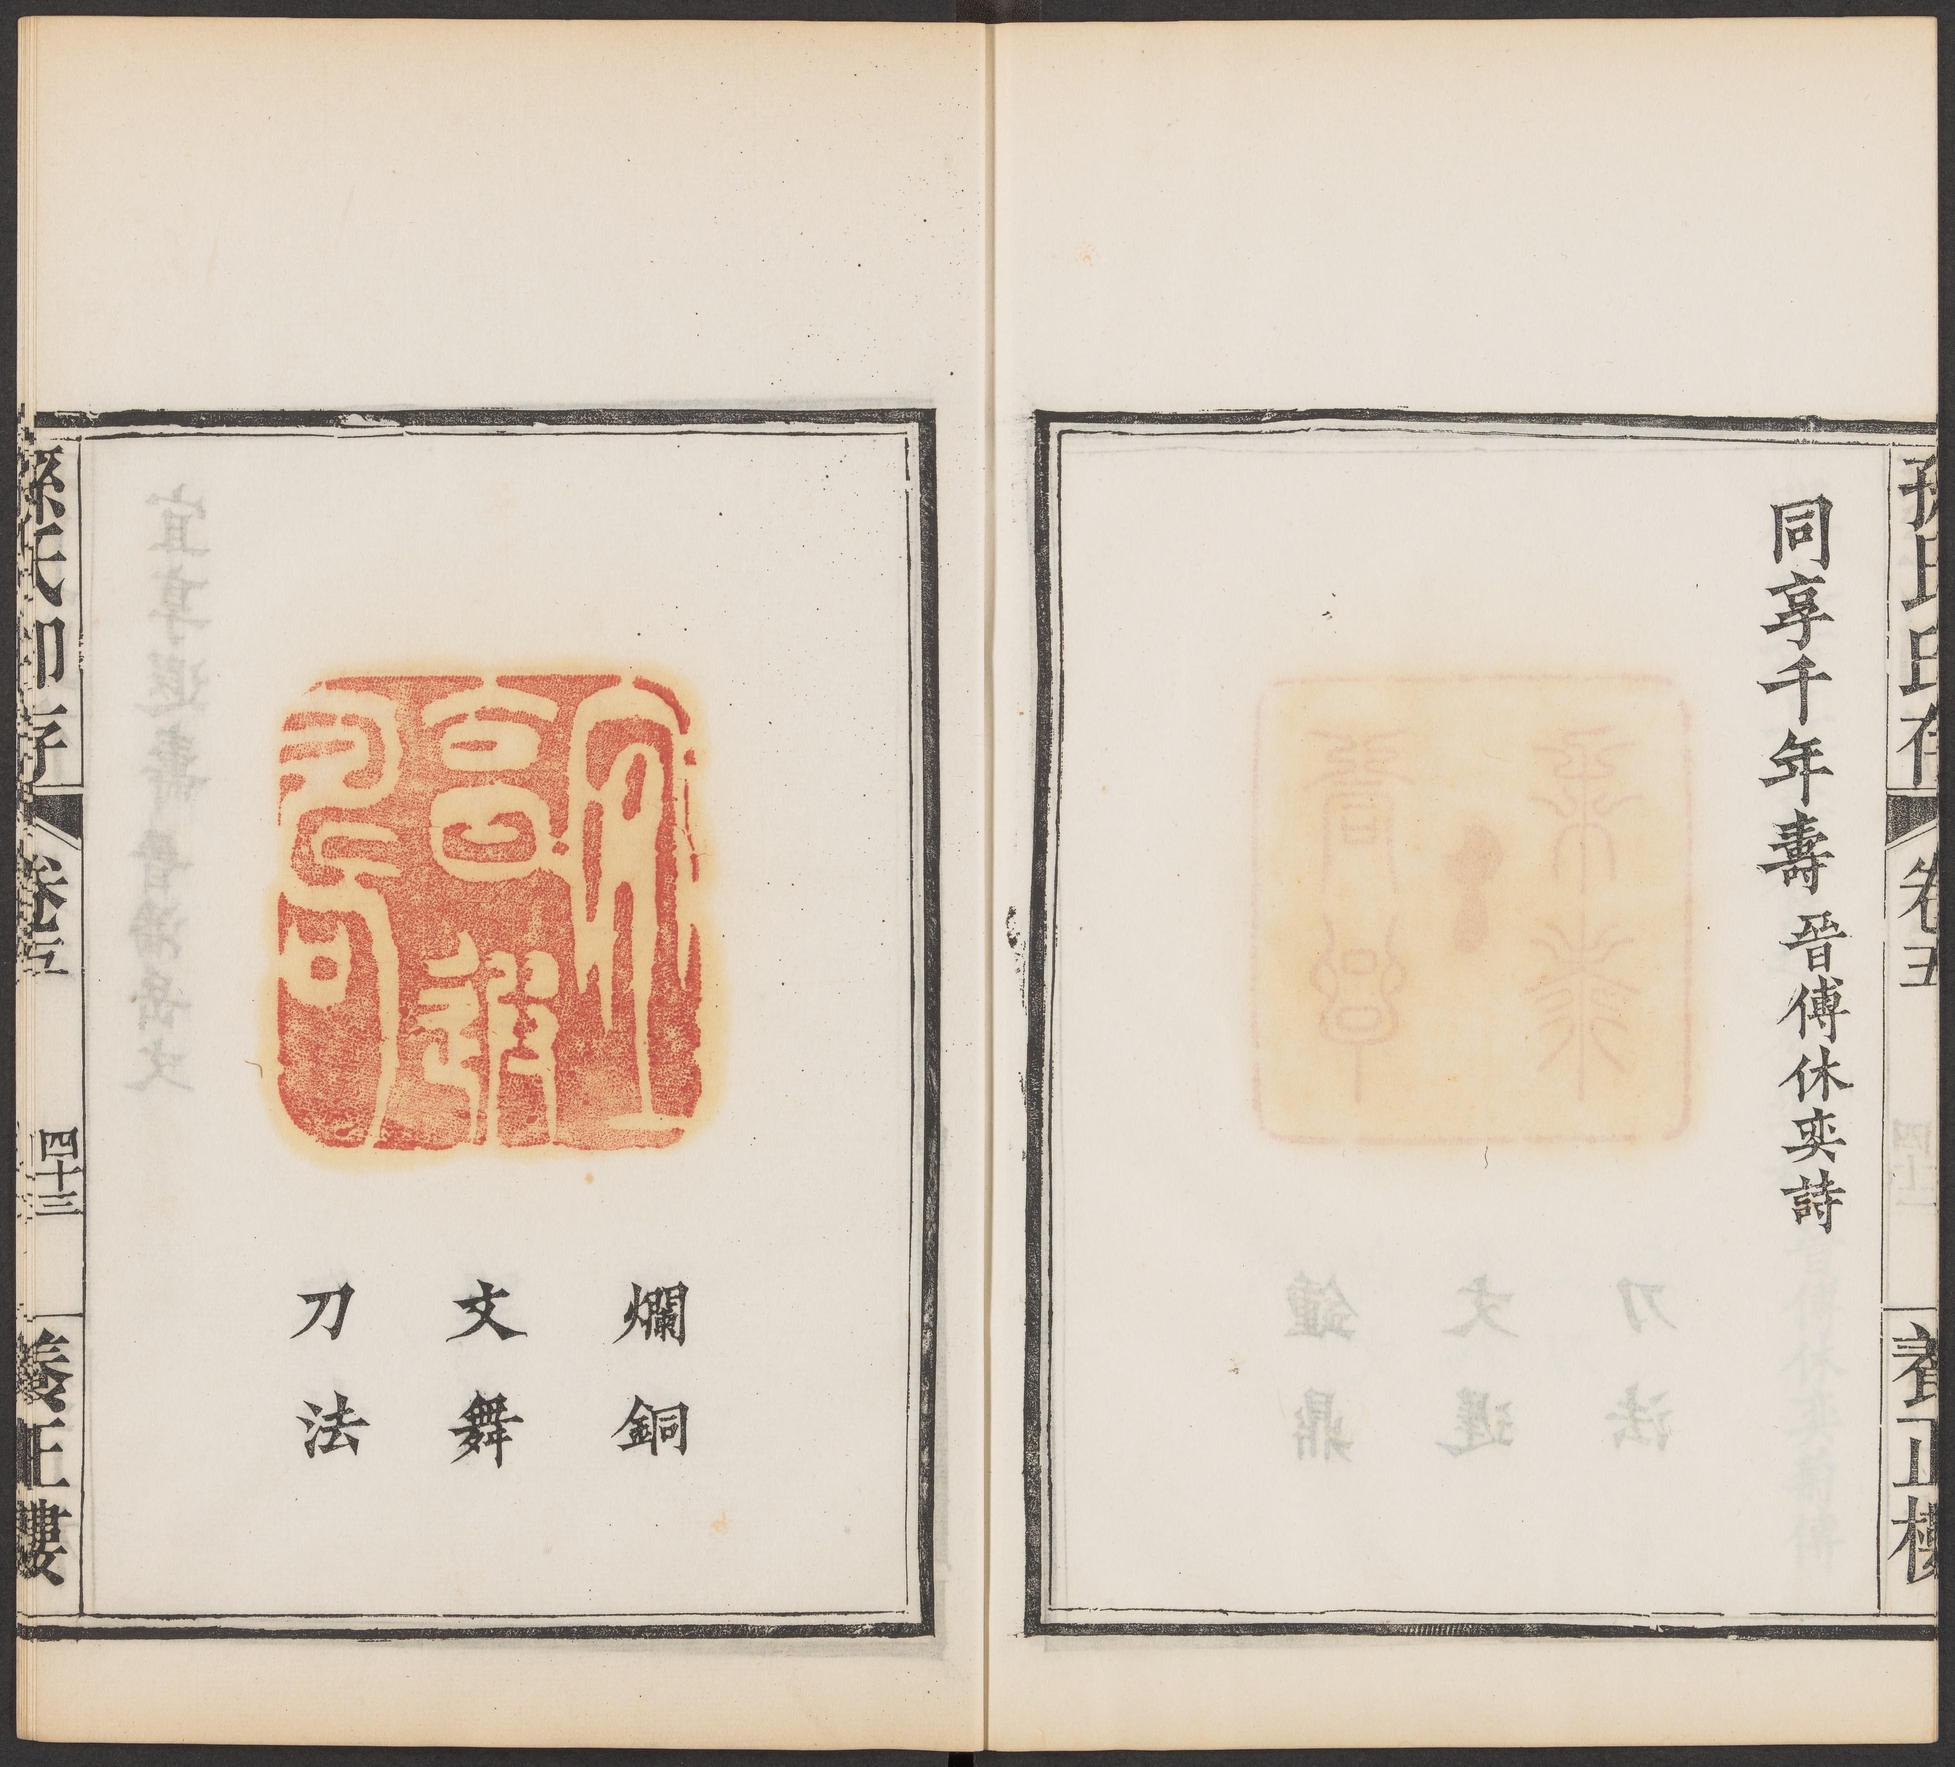 孫氏印存
卷五
養正樓
同享千年壽 晉傅休奕詩
爛銅
文舞
刀法
孫氏印存
卷五
四十三
養正樓